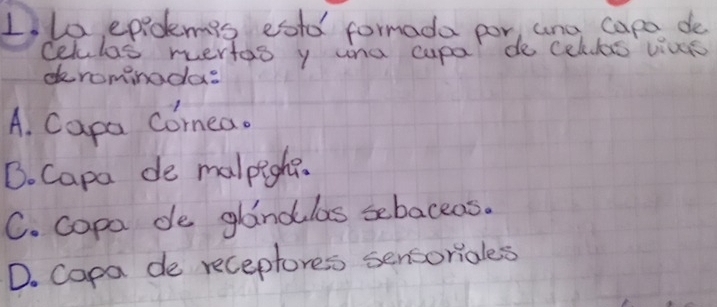 1. La epidermis está formada por una capa de
celulas muertas y una capa de celulas vivas
denominada:
A. Capa Córnea.
B. Capa de malpighi.
C. Capa de glándulas sebaceas.
D. Capa de receptores sensoriales